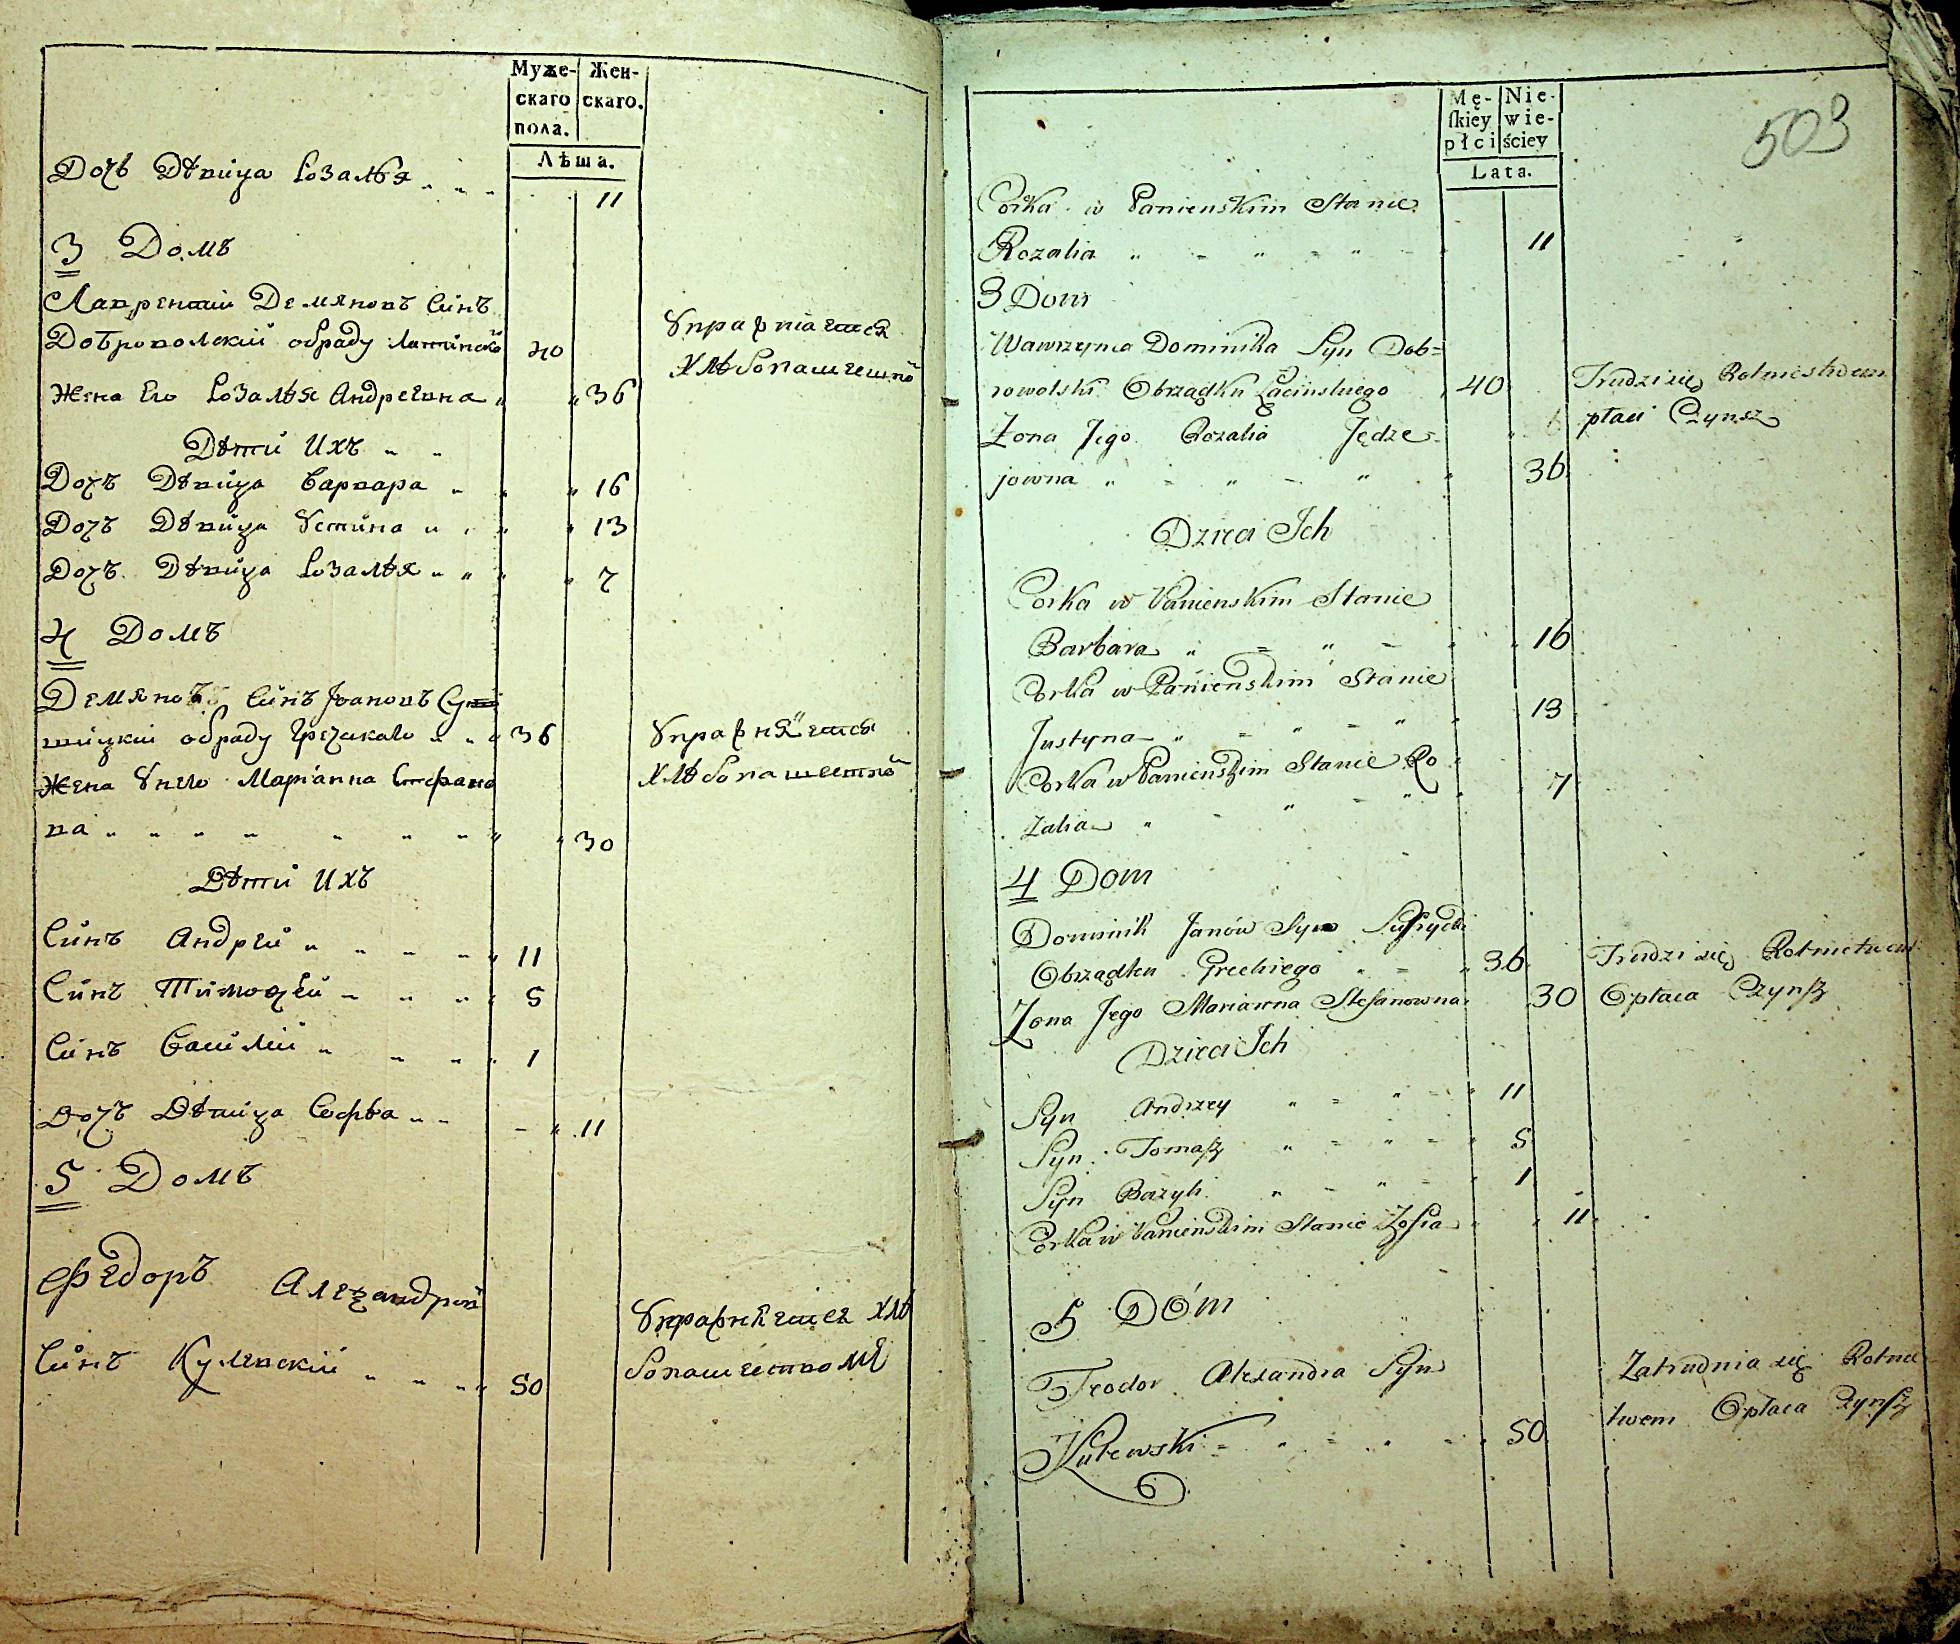 Муже- Жен-
скаго скаго.
пола.
Лѣта.
Дочь Дѣвица Розалѣя „ „ „ 11
3 Домъ
Лаврентий Демяновъ Синъ
Доброволский обраду Латинско 40 Упражнiается
Хлѣбопашество
Жена Его Розалѣя Андреевна „ „ 36
Дѣти Ихъ „ „
Дочъ Дѣвица Варвара „ „ „ 16
Дочъ Дѣвица Устина „ „ „ „ 13
Дочъ Дѣвица Розалѣя „ „ „ „ 7
4 Домъ
Демяновъ Синъ Iоановъ
обраду Гречикаго „ „ „ 36 Упражняется
Хлѣбопашество
Жена Унего Марiанна Стефано
ва „ „ „ „ „ „ „ „ „ 30
Дѣти Ихъ
Синъ Андрей „ „ „ „ „ 11
Синъ Тимофей „ „ „ „ 5
Синъ Василий „ „ „ „ 1
Дочъ Дѣвица Софѣа „ „ – „ 11
5 Домъ
Федоръ Александров
Синъ Кулевский „ „ „ „ 50 Упражняется хлѣ
бопашествомъ
Mę- Nie-
ſkiey wie-
płci ściey
Lata.
503
Corka w Panienskim Stanie
Rozalia „ = „ = „ 11
3 Dom
Wawrzynca Dominika Syn Dob=
rowolski Obrządku Łacinskiego 40 Trudzi się Rolnictwem
płaci Czynsz
Żona Jego Rozalia Jędrze-
jowna „ = „ – „ „ 36
Dzieci Ich
Corka w Panienskim Stanie
Barbara „ = „ – „ „ 16
Corka w Panienskim Stanie
Justyna „ = „ – „ „ 13
Corka w Panienskim Stanie Ro
zalia „ – „ – „ „ 7
4 Dom
Dominik Janów Syn
Obrządku Greckiego „ = „ 36 Trudzi się Rolnictwem
Żona Jego Marianna Stefanowna 30 Opłaca Czynsz
Dzieci Ich
Syn Andrzey „ = „ – „ 11
Syn Tomasz „ = „ = „ 5
Syn Bazyli „ – „ – „ 1
Corka w Panienskim Stanie Zofia „ „ 11
5 Dóm
Teodor Alexandra Syn Zatrudnia się Rolnic
Kulewski = „ = „ – „ 50 twem Opłaca Czynsz